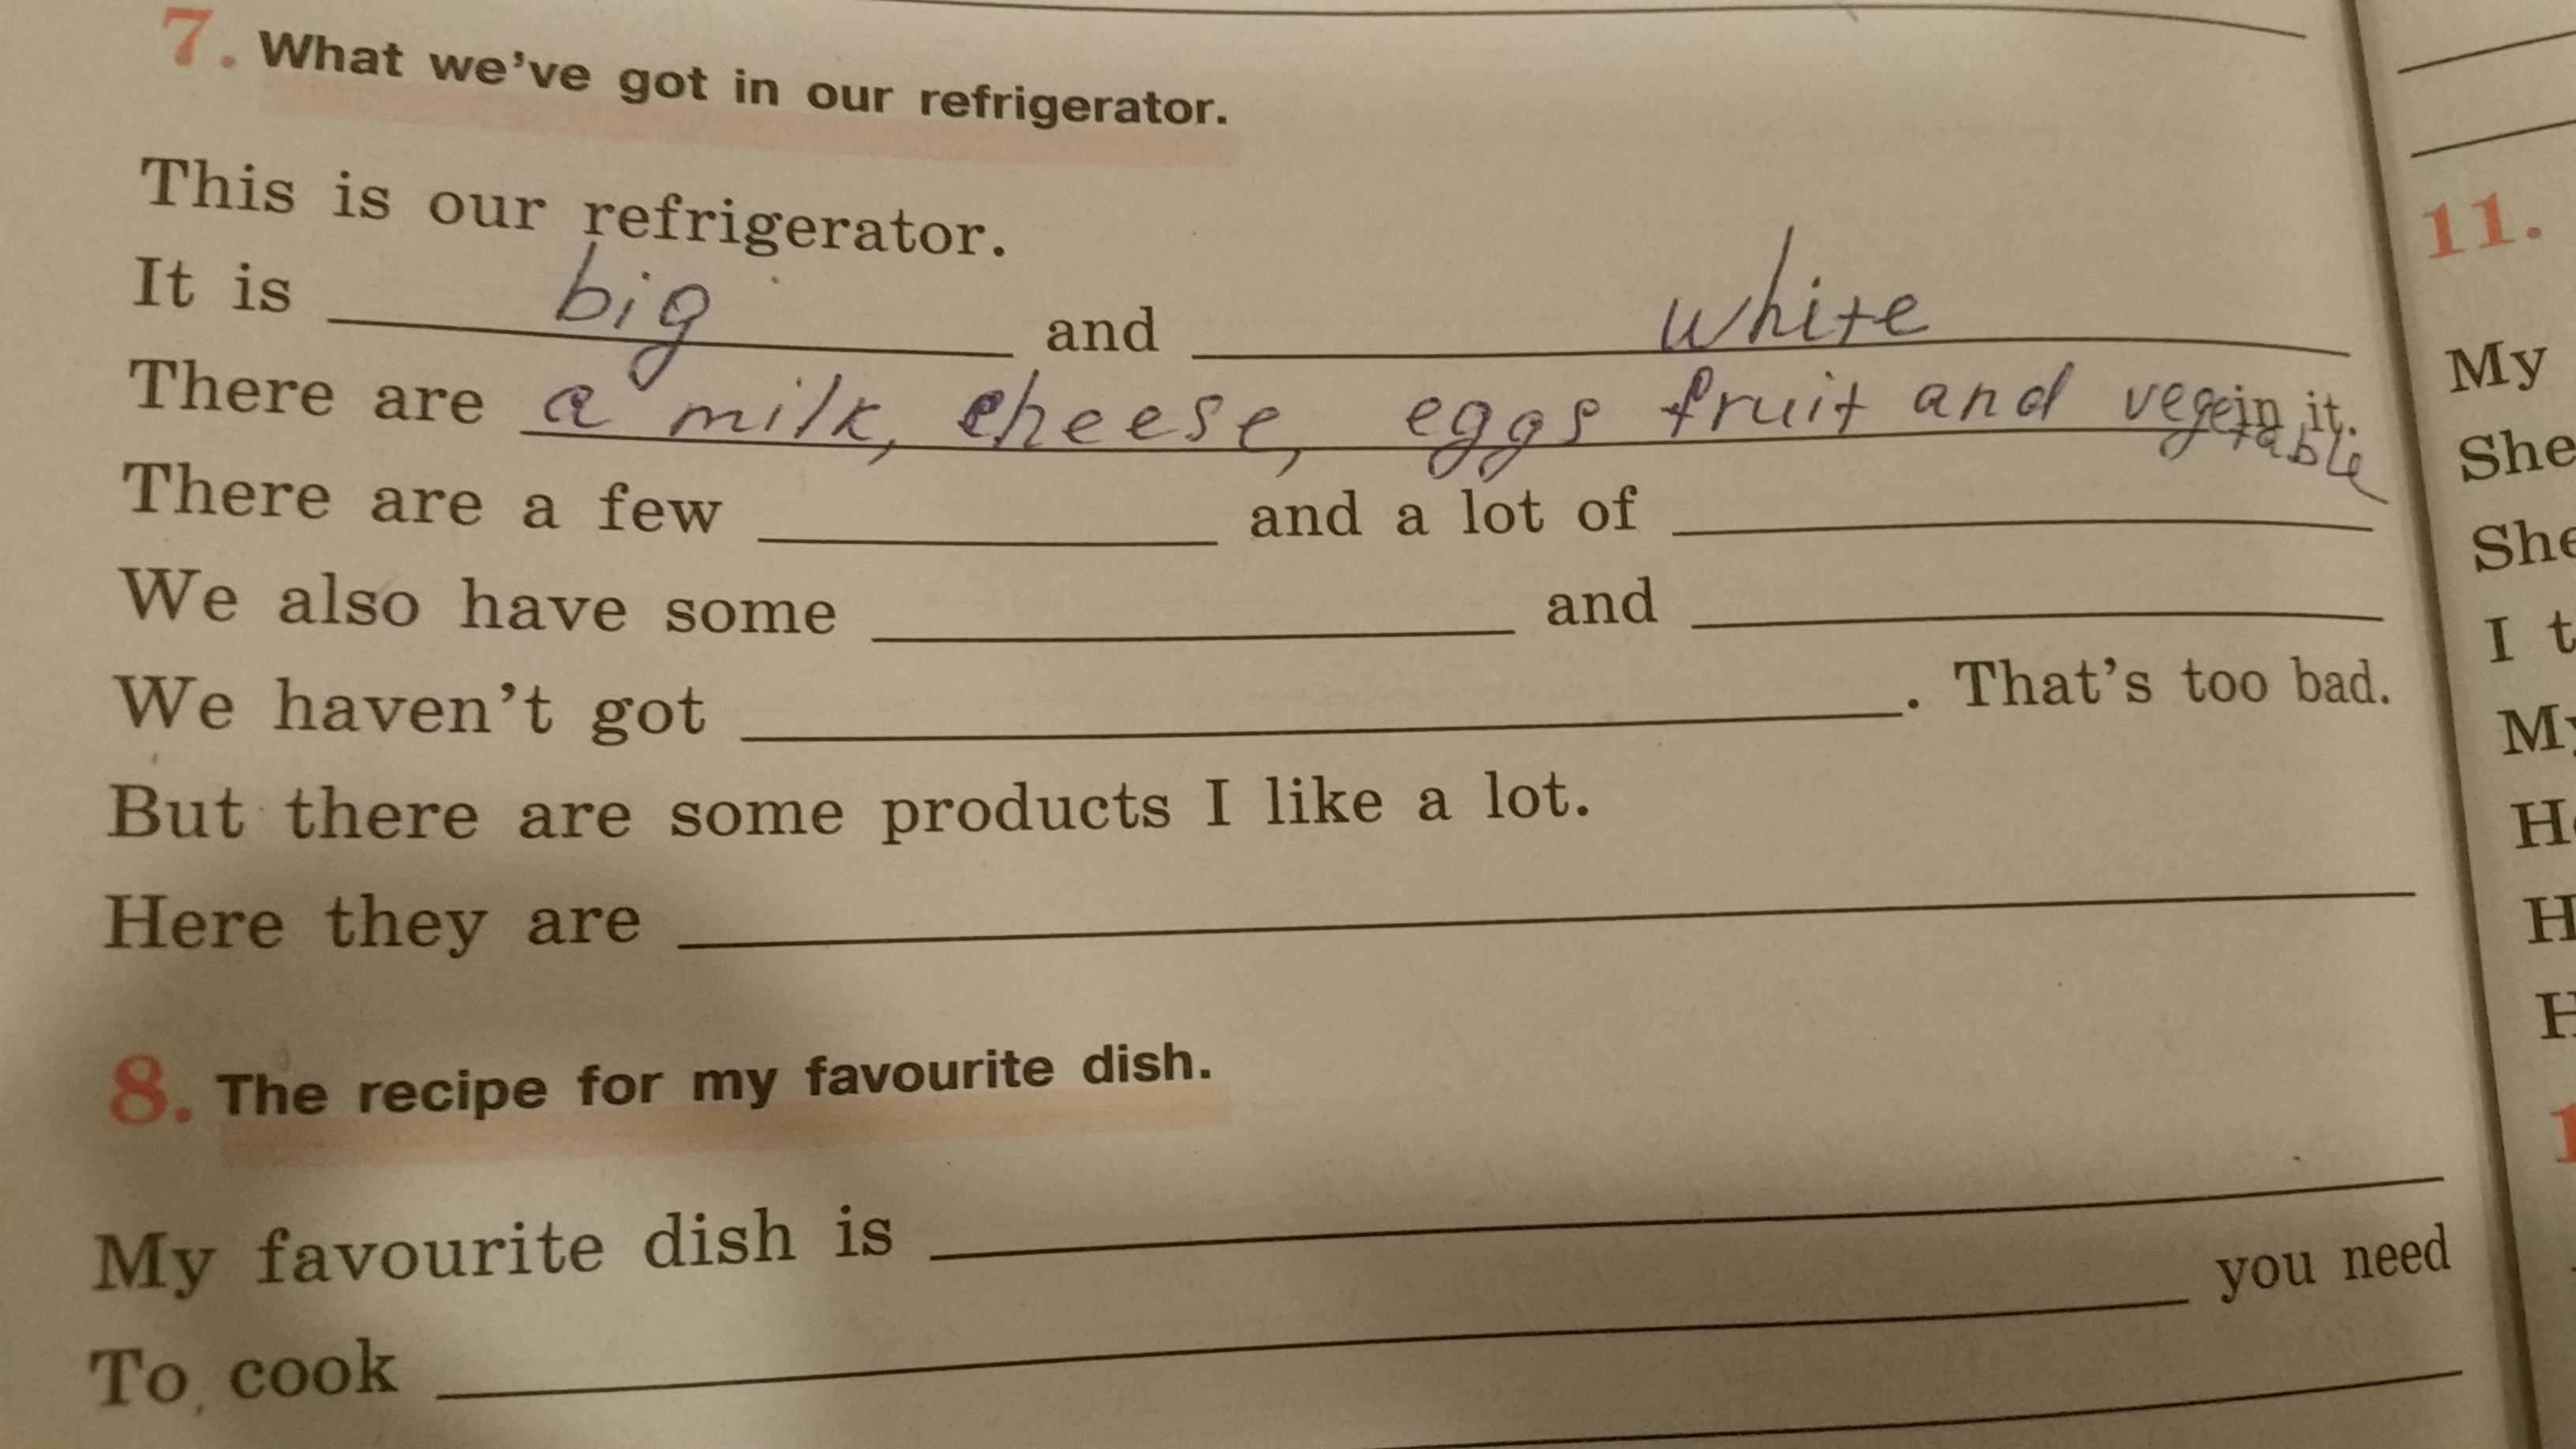 7. What we've got in our refrigerator.
This is our refrigerator.
It is big and white
There are a milk, cheese, eggs fruit and vegetable in it.
There are a few and a lot of
We also have some and
We haven't got . That's too bad.
But there are some products I like a lot.
Here they are
8. The recipe for my favourite dish.
My favourite dish is
To cook you need
11.
My
She
She
I